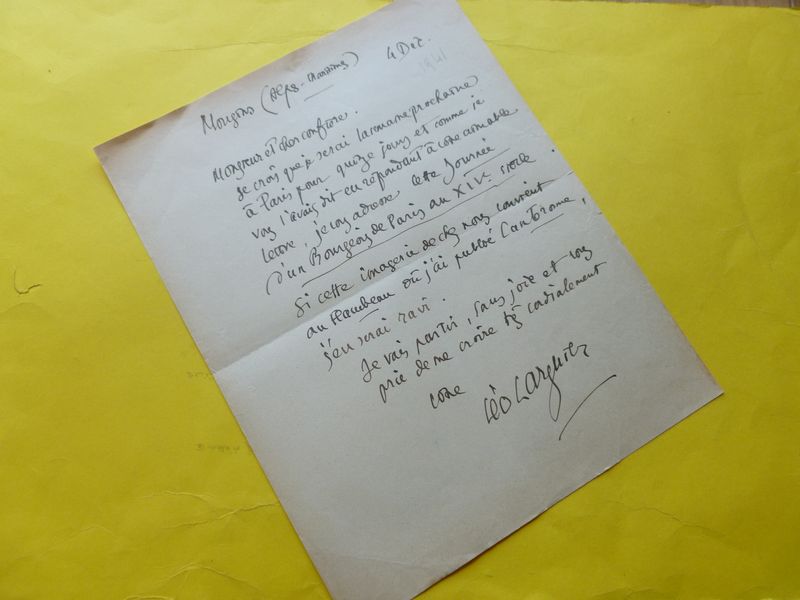 Mougins (Alpes-Maritimes) 4 Dec.
1941
Monsieur et cher confrère.
Je crois que je serai la semaine prochaine
à Paris pour quinze jours et comme je
vous l'avais dit en répondant à votre aimable
lettre, je vous adresse cette Journée
d'un Bourgeois de Paris au XIVe siècle.
Si cette imagerie de chez nous convient
au Flambeau où j'ai publié Cantorome,
j'en serai ravi.
Je vais partir, sans joie et vous
prie de me croire très cordialement
votre
Léo Larguier